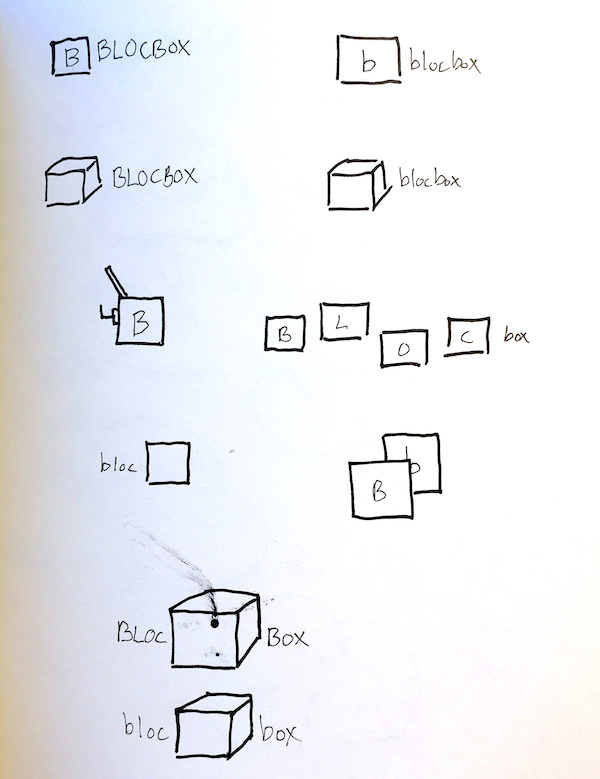 B BLOCBOX
b blocbox
BLOCBOX
blocbox
B
B L O C box
bloc
b
B
BLOC BOX
bloc box